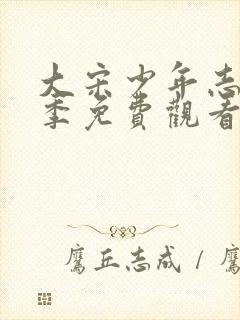 大宋少年志
季免費觀看
鷹丘志成 / 鷹